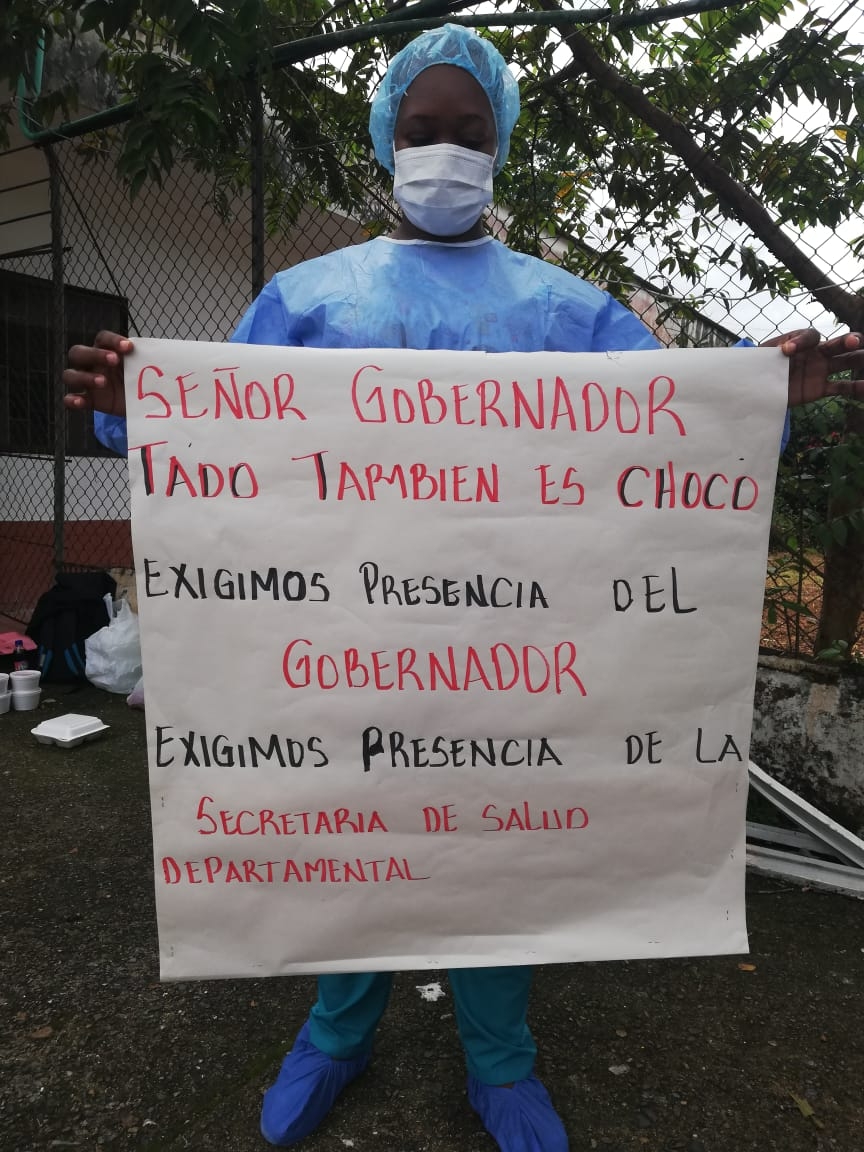 SEÑOR GOBERNADOR
TADO TAMBIEN ES CHOCÓ
EXIGIMOS PRESENCIA DEL
GOBERNADOR
EXIGIMOS PRESENCIA DE LA
SECRETARIA DE SALUD
DEPARTAMENTAL